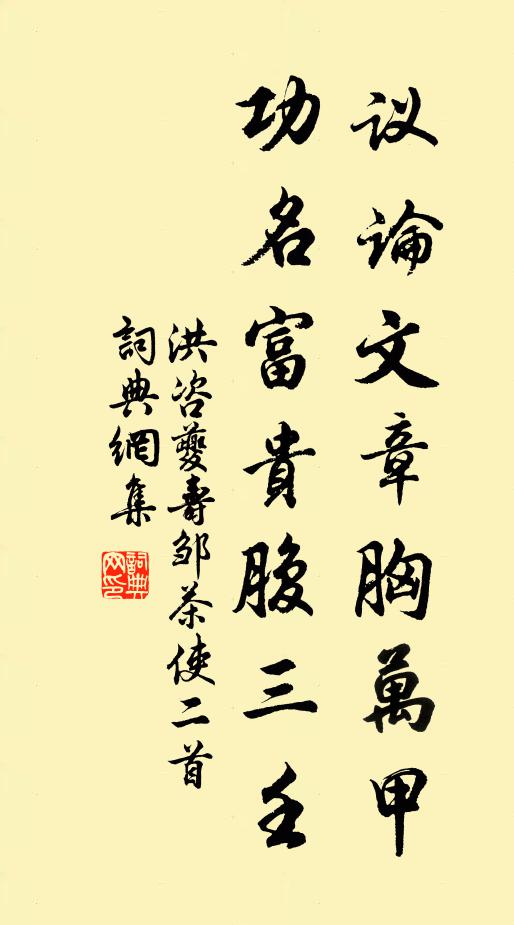 议論文章胸萬甲
功名富貴腹三壬
洪咨夔壽邹茶使二首
詞典網集
詞典
网印